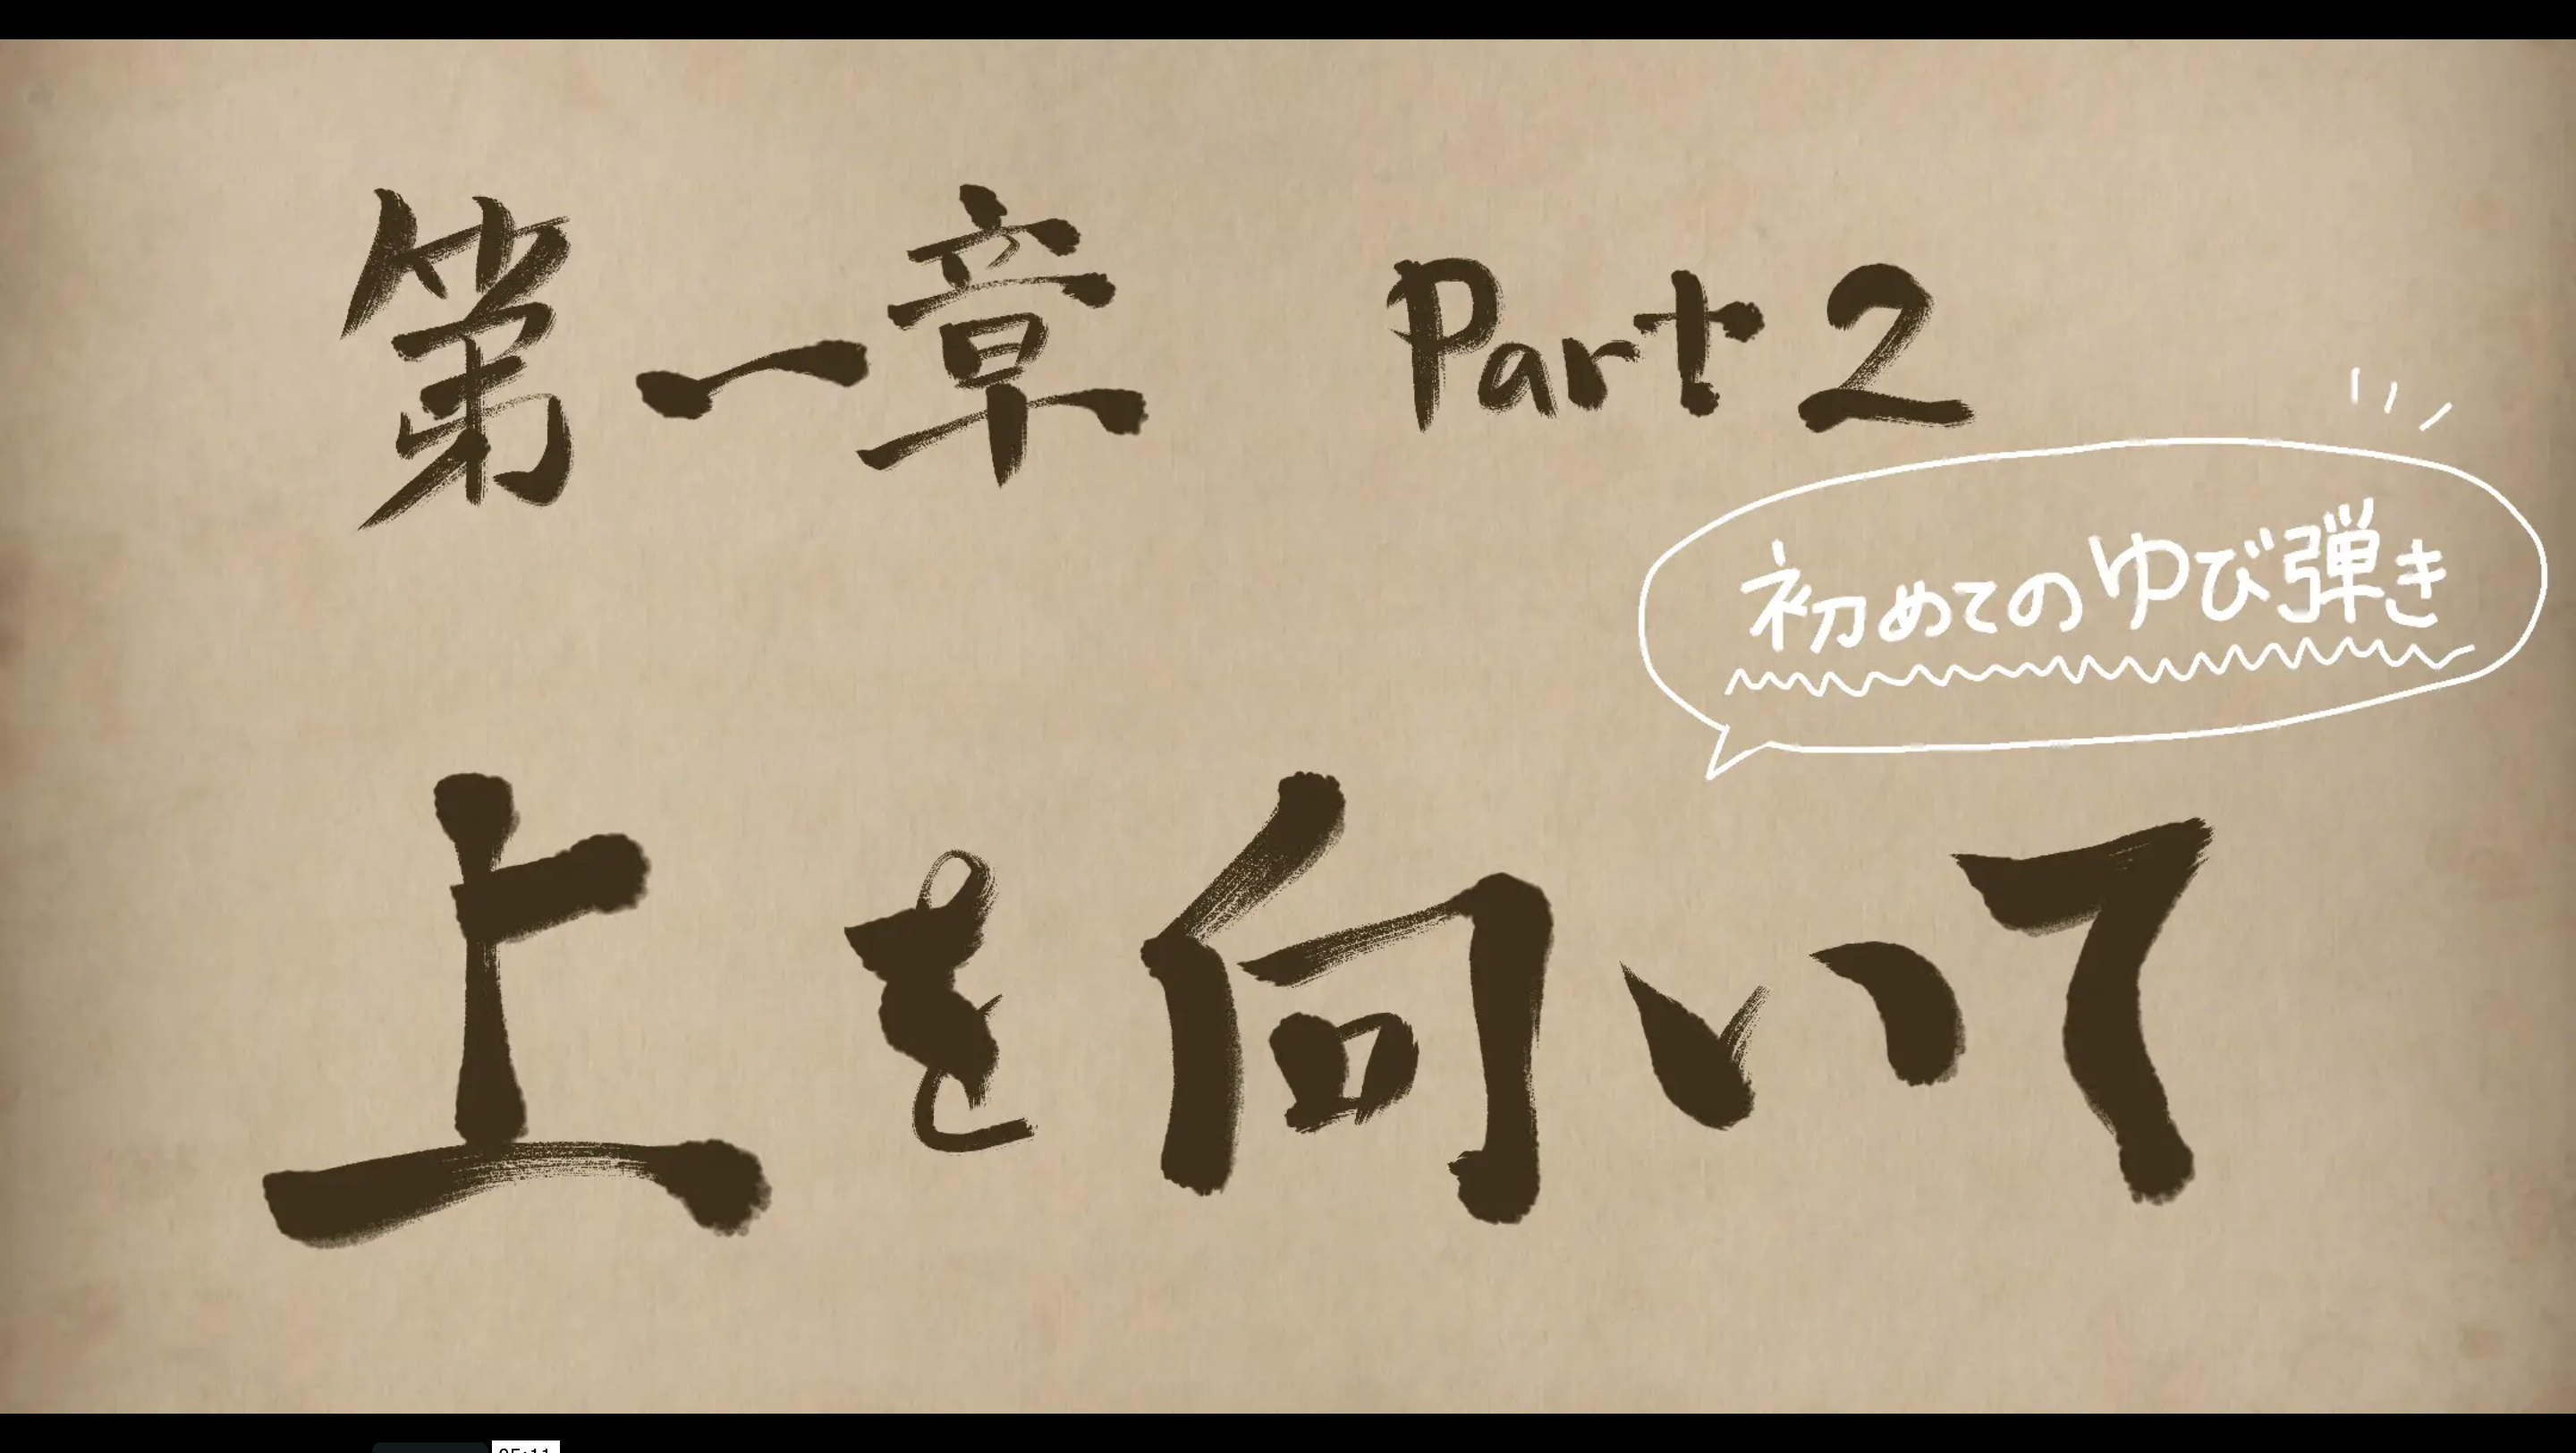 第一章 Part 2
初めてのゆび弾き
上を向いて